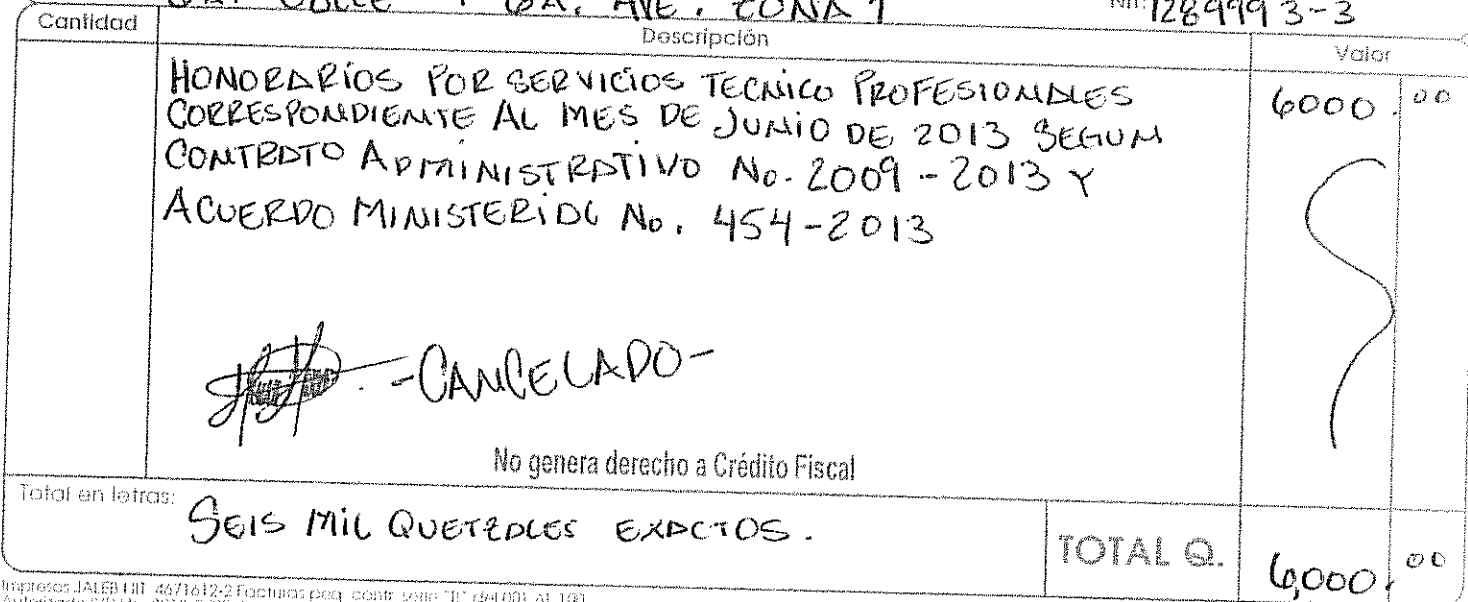 CALLE Y 6A. AVE. ZONA 1 Nit: 1289993-3
Cantidad Descripción Valor
HONORARIOS POR SERVICIOS TECNICO PROFESIONALES 6000.00
CORRESPONDIENTE AL MES DE JUNIO DE 2013 SEGUN
CONTRATO ADMINISTRATIVO No. 2009-2013 Y
ACUERDO MINISTERIAL No. 454-2013
-CANCELADO-
No genera derecho a Crédito Fiscal
Total en letras: SEIS MIL QUETZALES EXACTOS.
TOTAL Q. 6,000.00
Impresos JALEB NIT. 4671612-2 Facturas peq. contr. serie "B" del 001 Al 100